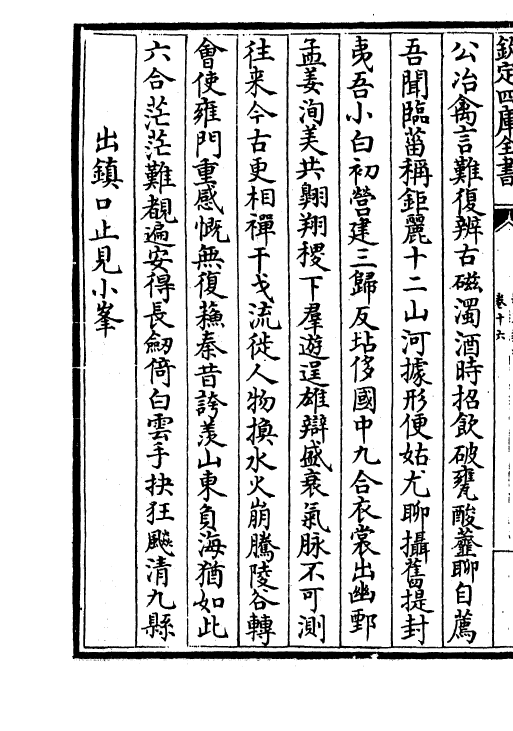 欽定四庫全書
卷十六
公冶禽言難復辨古磁濁酒時招飲破甕酸虀聊自薦
吾聞臨菑稱鉅麗十二山河據形便姑尤聊攝舊提封
夷吾小白初營建三歸反坫侈國中九合衣裳出幽鄄
孟姜洵美共翺翔稷下羣遊逞雄辯盛衰氣脉不可測
往来今古更相禪干戈流徙人物換水火崩騰陵谷轉
會使雍門重感慨無復蘇秦昔誇羡山東負海猶如此
六合茫茫難覩遍安得長劒倚白雲手抉狂飈清九縣
出鎮口止見小峯